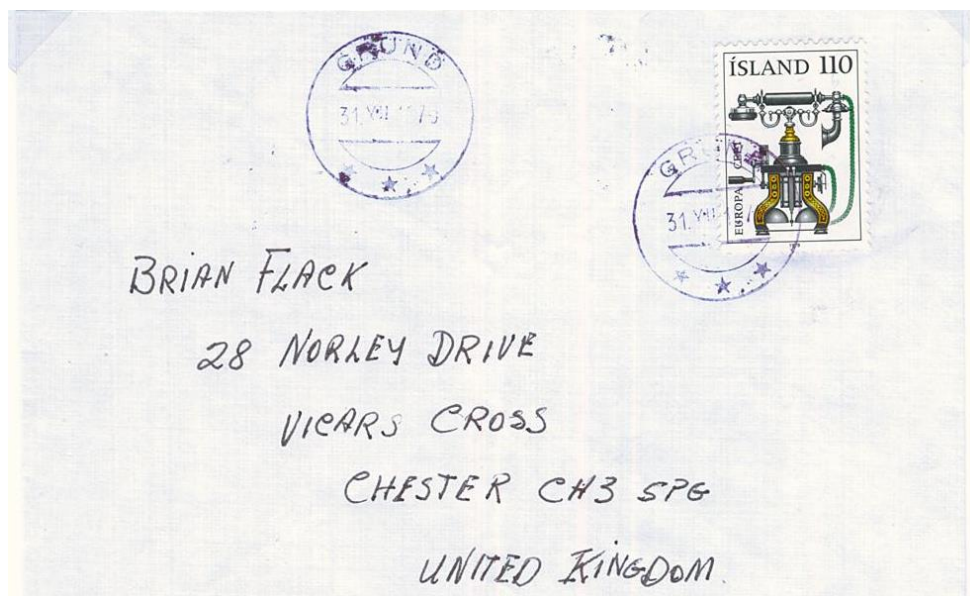 GRUND
31.VIII.1979
ÍSLAND 110
EUROPA CEPT
GRUND
31.VIII
BRIAN FLACK
28 NORLEY DRIVE
VICARS CROSS
CHESTER CH3 5PG
UNITED KINGDOM